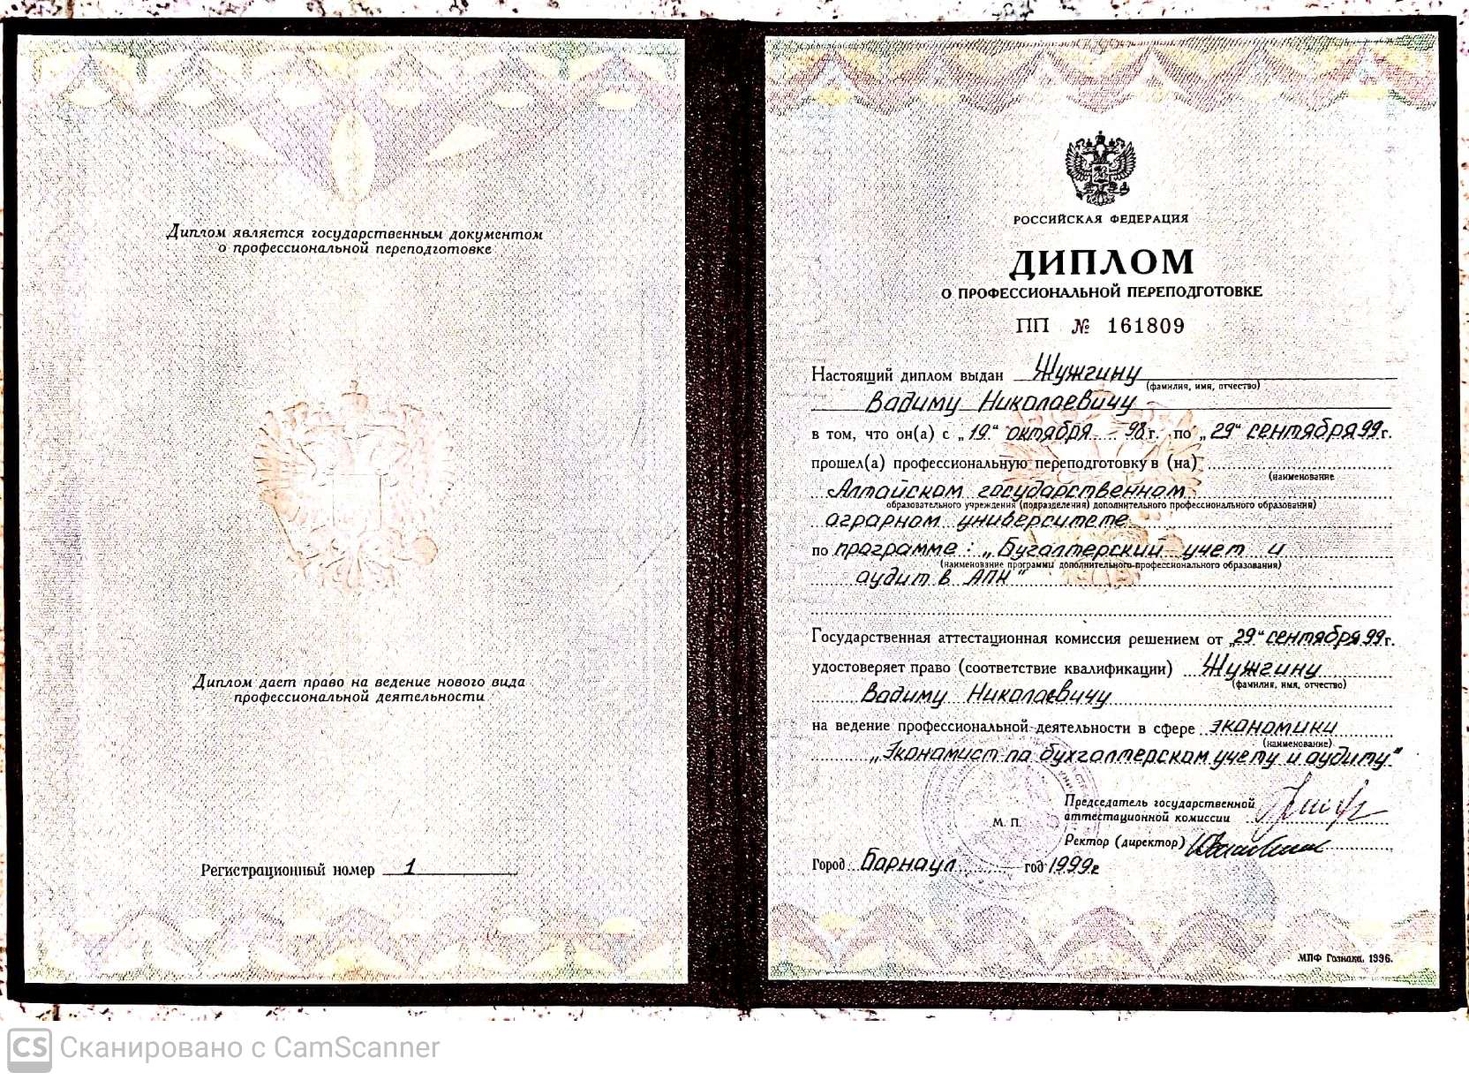 Диплом является государственным документом
о профессиональной переподготовке
Диплом дает право на ведение нового вида
профессиональной деятельности
Регистрационный номер 1
РОССИЙСКАЯ ФЕДЕРАЦИЯ
ДИПЛОМ
О ПРОФЕССИОНАЛЬНОЙ ПЕРЕПОДГОТОВКЕ
ПП № 161809
Настоящий диплом выдан Жужгину
(фамилия, имя, отчество)
Вадиму Николаевичу
в том, что он(а) с „19“ октября 98 г. по „29“ сентября 99 г.
прошел(а) профессиональную переподготовку в (на)
(наименование
Алтайском государственном
образовательного учреждения (подразделения) дополнительного профессионального образования)
аграрном университете
по программе: „Бухгалтерский учет и
(наименование программы дополнительного профессионального образования)
аудит в АПК“
Государственная аттестационная комиссия решением от „29“ сентября 99 г.
удостоверяет право (соответствие квалификации) Жужгину
(фамилия, имя, отчество)
Вадиму Николаевичу
на ведение профессиональной деятельности в сфере экономики
(наименование)
„Экономист по бухгалтерском учету и аудиту“
Председатель государственной
аттестационной комиссии
М. П.
Ректор (директор)
Город Барнаул год 1999г
МПФ Гознака. 1996.
CS Сканировано с CamScanner